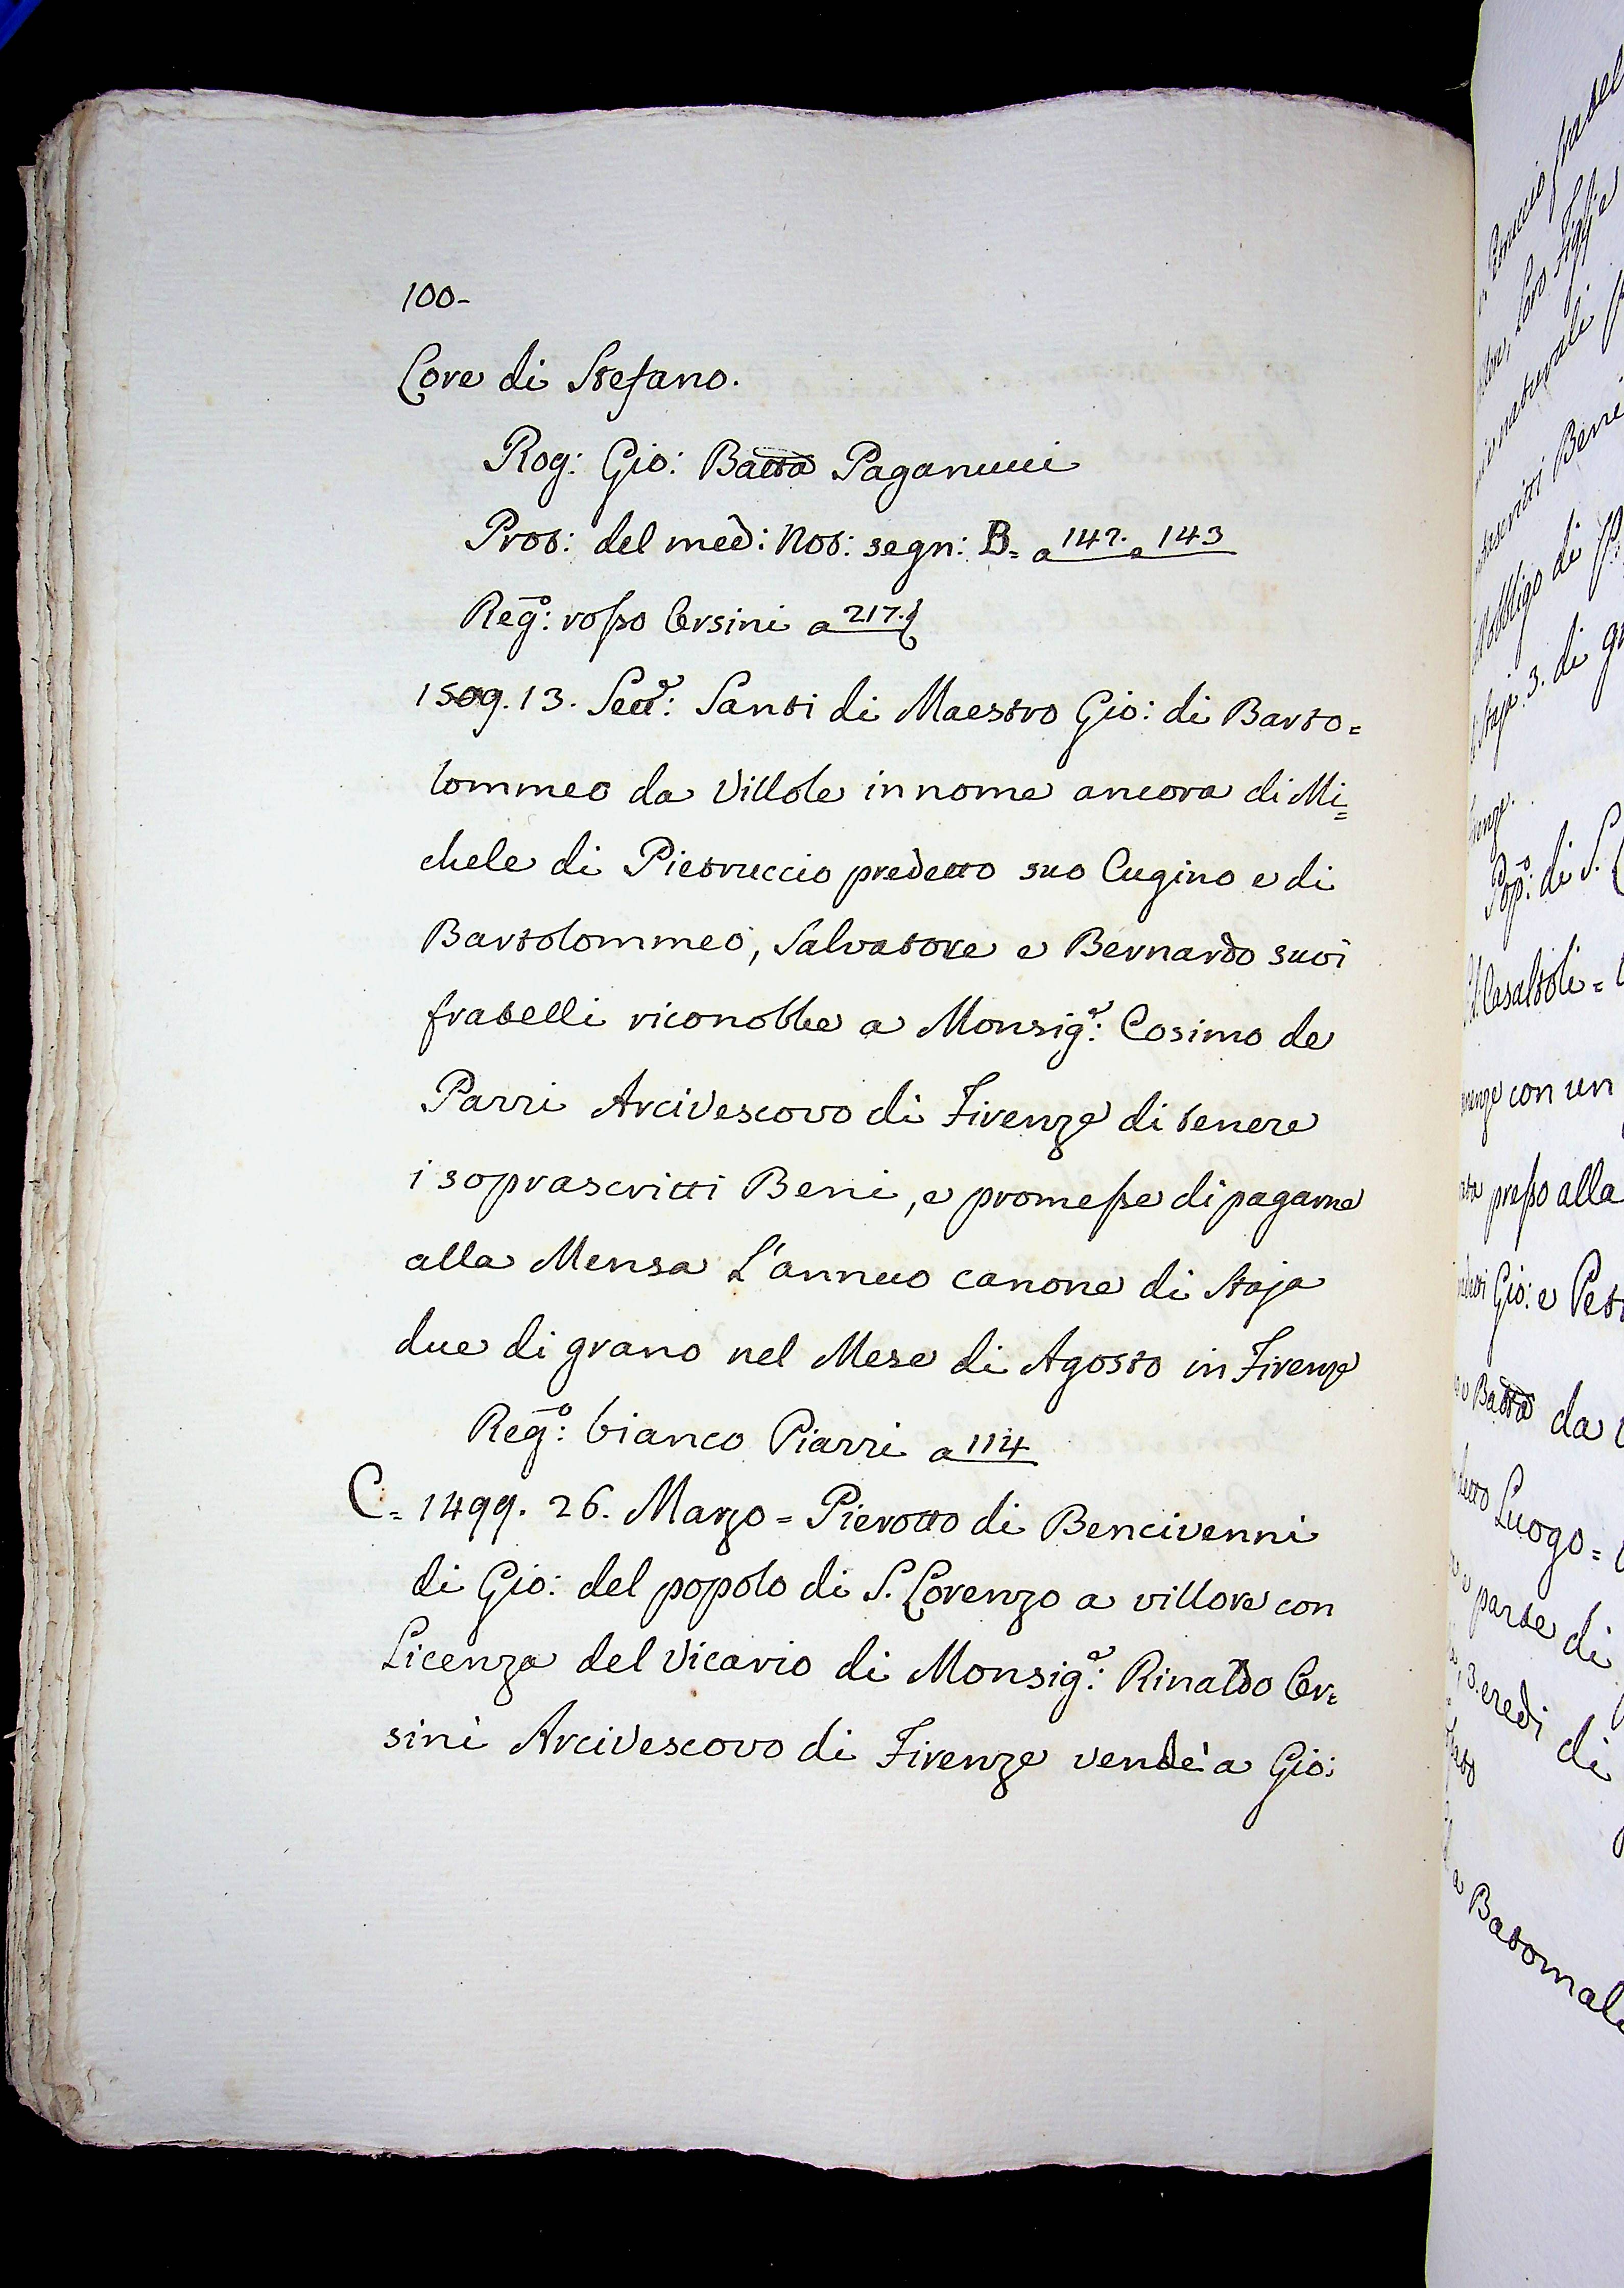 100-
Core di Stefano.
Rog: Gio: Batta Paganucci
Prot: del med: Not: segn: B= a 142. a 143
Reg.º: rosso Orsini a 217.
1509. 13. Sett.e: Santi di Maestro Gio: di Barto=
lommeo da Villole in nome ancora di Mi=
chele di Pietruccio predetto suo Cugino e di
Bartolommeo, Salvatore e Bernardo suoi
fratelli riconobbe a Monsig.e: Cosimo de
Pazzi Arcivescovo di Firenze di tenere
i soprascritti Beni, e promesse di pagarne
alla Mensa L'annuo canone di Staja
due di grano nel Mese di Agosto in Firenze
Reg.º: bianco Piazzi a 114
C= 1499. 26. Marzo = Pierotto di Bencivenni
di Gio: del popolo di S. Lorenzo a villore con
Licenza del Vicario di Monsig.e: Rinaldo Or=
sini Arcivescovo di Firenze vendè a Gio: